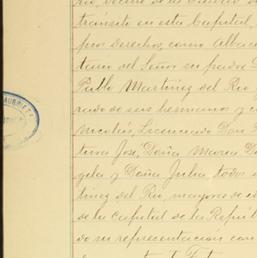 Rio, vecino de la Ciudad de
tránsito en esta Capital,
pios derechos, como Albacea
tario del Señor su padre D
Pablo Martinez del Rio
rado de sus hermanos y c
Nicolás, Licenciado Don
tura José, Doña Maria, Do
gela y Doña Julia, todos
tinez del Rio, mayores de e
de la Capital de la Repúb
do su representacion con